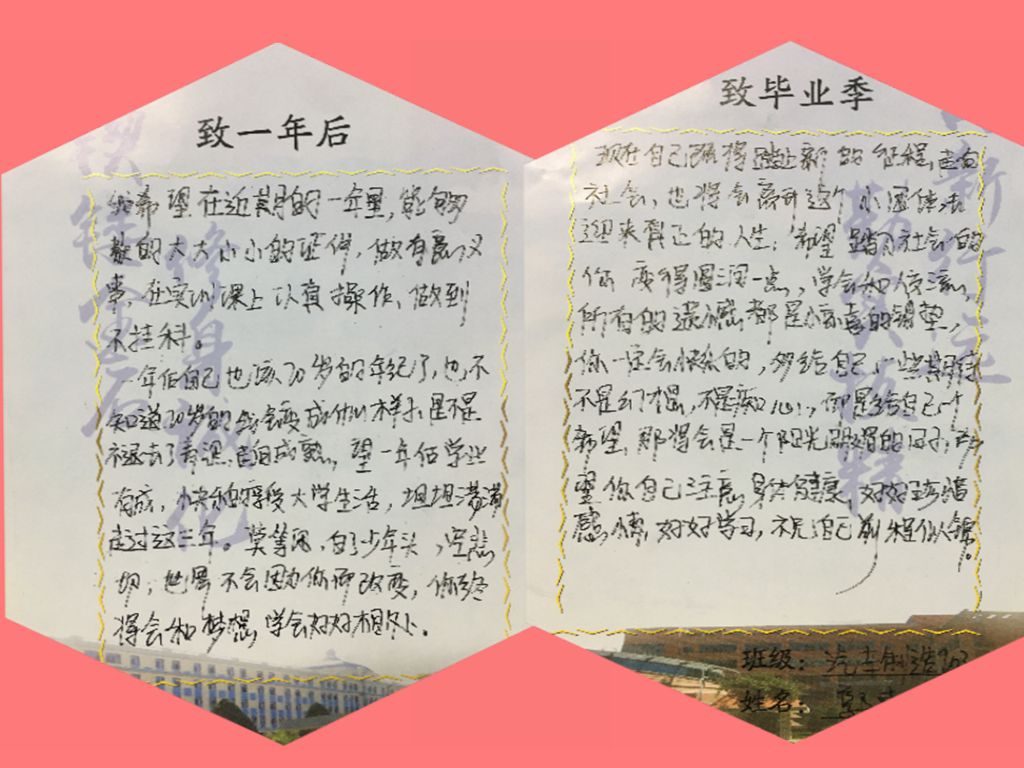 致一年后
希望在近期的一年里,能够
的大大小小的证件,做有意义
事,在实训课上认真操作,做到
不挂科。
一年后自己也该20岁的年纪了,也不
知道20岁的我会变成什么样子,是不是
褪去了青涩,走向成熟,望一年后学业
有成,愉快的享受大学生活,坦坦荡荡
走过这三年。莫等闲,白了少年头,空悲
切,世界不会因为你而改变,你终
得会和梦想,学会好好相处。
致毕业季
现在自己将踏上新的征程,走向
社会,也将会离开这个小团体去
迎来真正的人生,希望踏入社会的
你变得圆润一点,学会如何交流,
所有的遗憾都是惊喜的铺垫,
你一定会快乐的,多给自己一些期待
不是幻想,不是痴心,而是给自己一个
希望,那将会是一个阳光明媚的日子,
望你自己注意身体健康,好好珍惜
感情,好好学习,祝自己前程似锦。
班级:汽车制造
姓名: